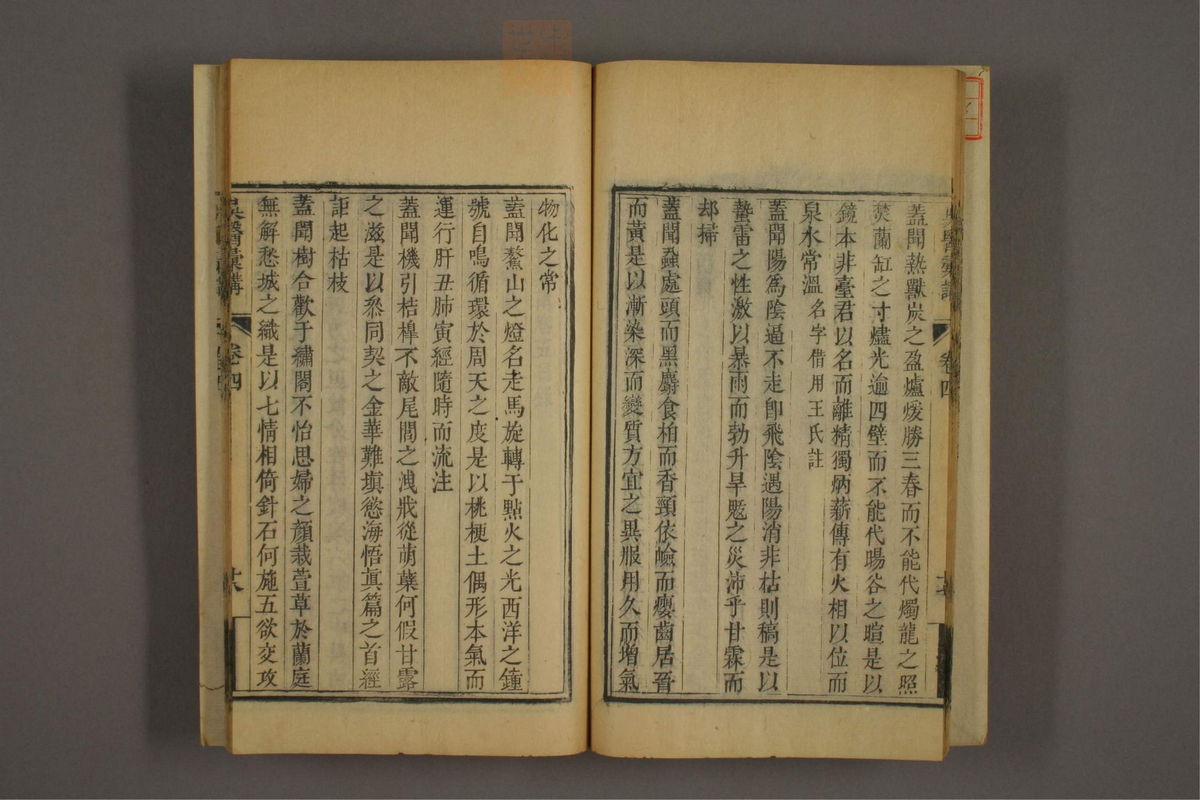 吳醫彙講
卷四
蓋聞熱獸炭之盈爐煖勝三春而不能代燭龍之照
焚蘭缸之寸燼光逾四壁而不能代暘谷之暄是以
鏡本非臺君以名而離精獨炳薪傳有火相以位而
泉水常溫名字借用王氏註
蓋聞陽爲陰逼不走卽飛陰遇陽消非枯則稿是以
蟄雷之性激以暴雨而勃升旱魃之災沛乎甘霖而
却掃
蓋聞蝨處頭而黑麝食柏而香頸依嶮而癭齒居晉
而黃是以漸染深而變質方宜之異服用久而增氣
物化之常
蓋聞鰲山之燈名走馬旋轉于㸃火之光西洋之鐘
號自鳴循環於周天之度是以桃梗土偶形本氣而
運行肝丑肺寅經隨時而流注
蓋聞機引桔槔不敵尾閭之洩戕從萌蘖何假甘露
之滋是以叅同契之金華難塡慾海悟眞篇之首經
詎起枯枝
蓋聞樹合歡于繡閣不怡思婦之顏栽萱草於蘭庭
無解愁城之織是以七情相倚針石何施五欲交攻
吳醫彙講
卷四